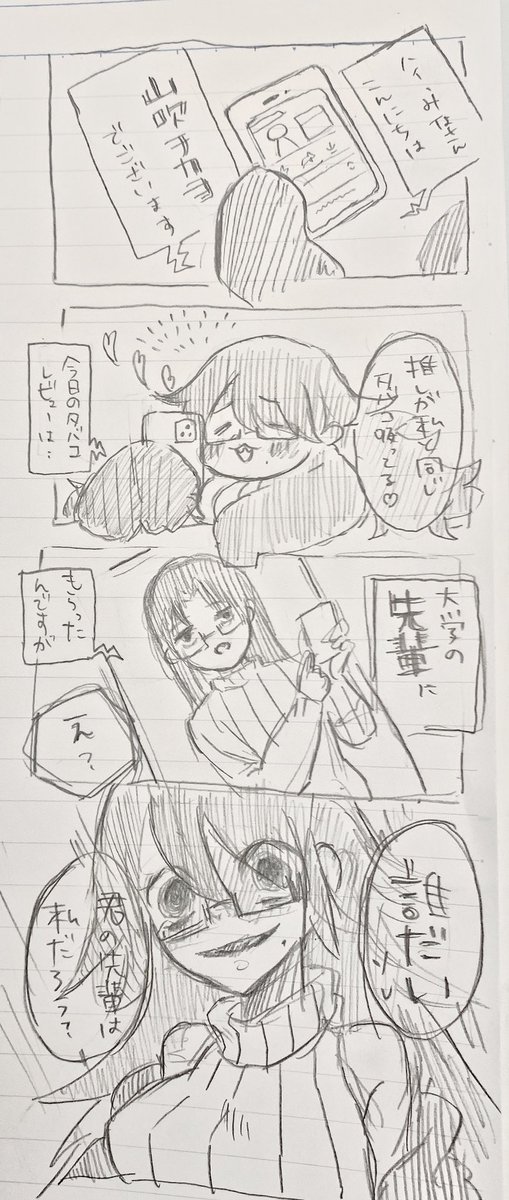 こんにちは
山吹チカヨ
でございます
推しが私と同じ
タバコ吸ってる♡
今日のタバコ
レビューは…
大学の
先輩に
もらった
んですが
え?
誰だい
ソレ
君の先輩は
私だろって?